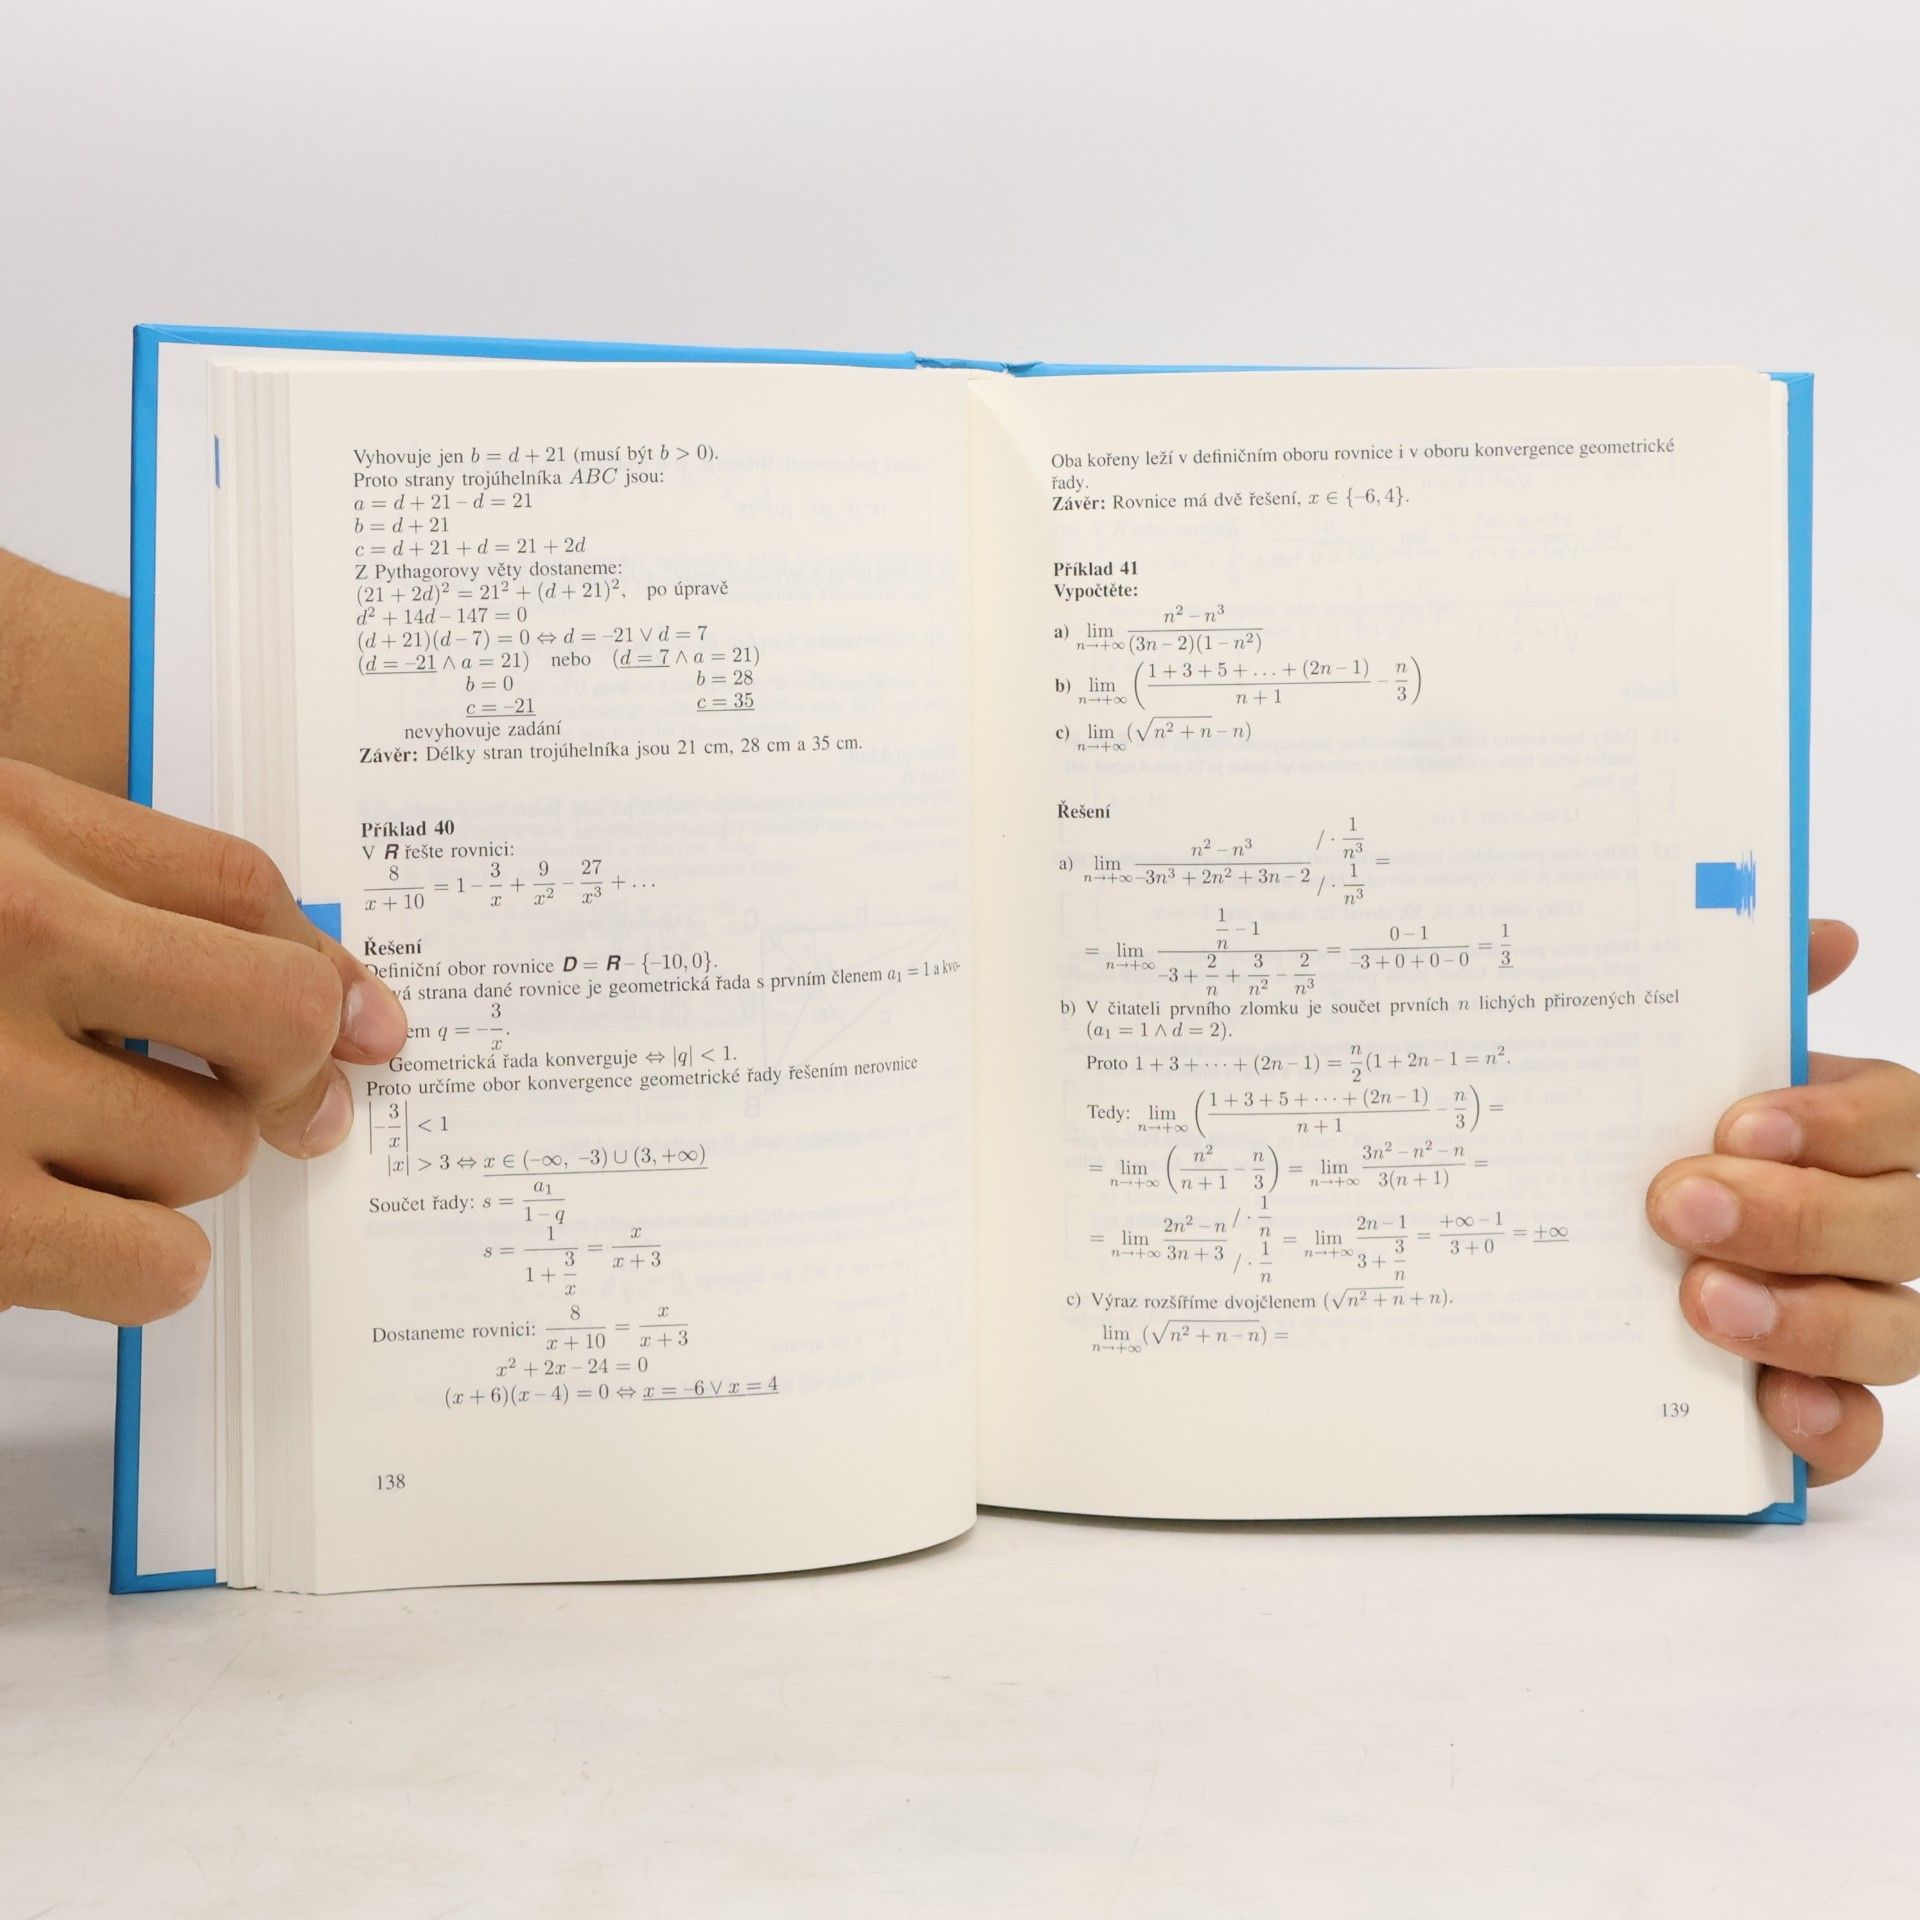 Vyhovuje jen b = d + 21 (musí být b > 0).
Proto strany trojúhelníka ABC jsou:
a = d + 21 – d = 21
b = d + 21
c = d + 21 + d = 21 + 2d
Z Pythagorovy věty dostaneme:
(21 + 2d)² = 21² + (d + 21)², po úpravě
d² + 14d – 147 = 0
(d + 21)(d – 7) = 0 ⇔ d = –21 ∨ d = 7
(d = –21 ∧ a = 21) nebo (d = 7 ∧ a = 21)
b = 0 b = 28
c = –21 c = 35
nevyhovuje zadání
Závěr: Délky stran trojúhelníka jsou 21 cm, 28 cm a 35 cm.
Příklad 40
V R řešte rovnici:
8/(x + 10) = 1 – 3/x + 9/x² – 27/x³ + …
Řešení
Definiční obor rovnice D = R – {–10, 0}.
vá strana dané rovnice je geometrická řada s prvním členem a₁ = 1 a kvo-
em q = –3/x.
Geometrická řada konverguje ⇔ |q| < 1.
Proto určíme obor konvergence geometrické řady řešením nerovnice
|–3/x| < 1
|x| > 3 ⇔ x ∈ (–∞, –3) ∪ (3, +∞)
Součet řady: s = a₁/(1 – q)
s = 1/(1 + 3/x) = x/(x + 3)
Dostaneme rovnici: 8/(x + 10) = x/(x + 3)
x² + 2x – 24 = 0
(x + 6)(x – 4) = 0 ⇔ x = –6 ∨ x = 4
138
Oba kořeny leží v definičním oboru rovnice i v oboru konvergence geometrické
řady.
Závěr: Rovnice má dvě řešení, x ∈ {–6, 4}.
Příklad 41
Vypočtěte:
a) lim n→+∞ (n² – n³)/((3n – 2)(1 – n²))
b) lim n→+∞ ((1 + 3 + 5 + … + (2n – 1))/(n + 1) – n/3)
c) lim n→+∞ (√(n² + n) – n)
Řešení
a) lim n→+∞ (n² – n³)/(–3n³ + 2n² + 3n – 2) /· 1/n³ /· 1/n³ =
= lim n→+∞ (1/n – 1)/(–3 + 2/n + 3/n² – 2/n³) = (0 – 1)/(–3 + 0 + 0 – 0) = 1/3
b) V čitateli prvního zlomku je součet prvních n lichých přirozených čísel
(a₁ = 1 ∧ d = 2).
Proto 1 + 3 + ⋯ + (2n – 1) = n/2(1 + 2n – 1 = n².
Tedy: lim n→+∞ ((1 + 3 + 5 + ⋯ + (2n – 1))/(n + 1) – n/3) =
= lim n→+∞ (n²/(n + 1) – n/3) = lim n→+∞ (3n² – n² – n)/(3(n + 1)) =
= lim n→+∞ (2n² – n)/(3n + 3) /· 1/n /· 1/n = lim n→+∞ (2n – 1)/(3 + 3/n) = (+∞ – 1)/(3 + 0) = +∞
c) Výraz rozšíříme dvojčlenem (√(n² + n) + n).
lim n→+∞ (√(n² + n – n)) =
139